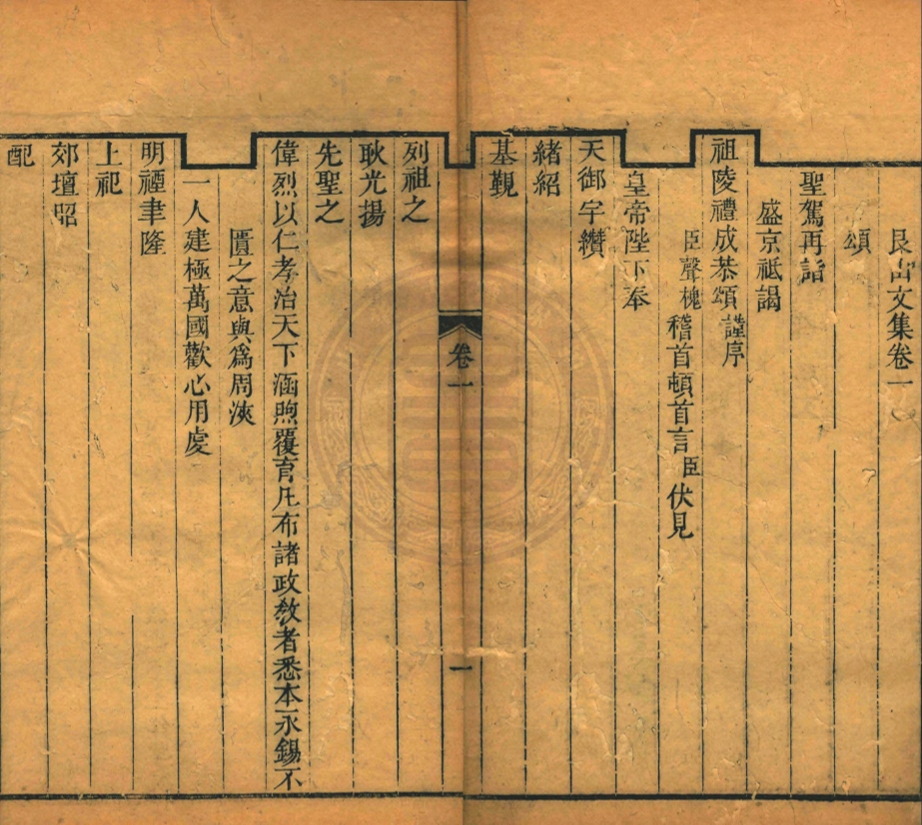 艮山文集卷一
頌
聖駕再詣
盛京祗謁
祖陵禮成恭頌謹序
臣聲槐稽首頓首言臣伏見
皇帝陛下奉
天御宇纘
緒紹
基覲
卷一
一
列祖之
耿光揚
先聖之
偉烈以仁孝治天下涵煦覆育凡布諸政教者悉本永錫不
匱之意與為周浹
一人建極萬國歡心用虔
明禋聿隆
上祀
郊壇昭
配